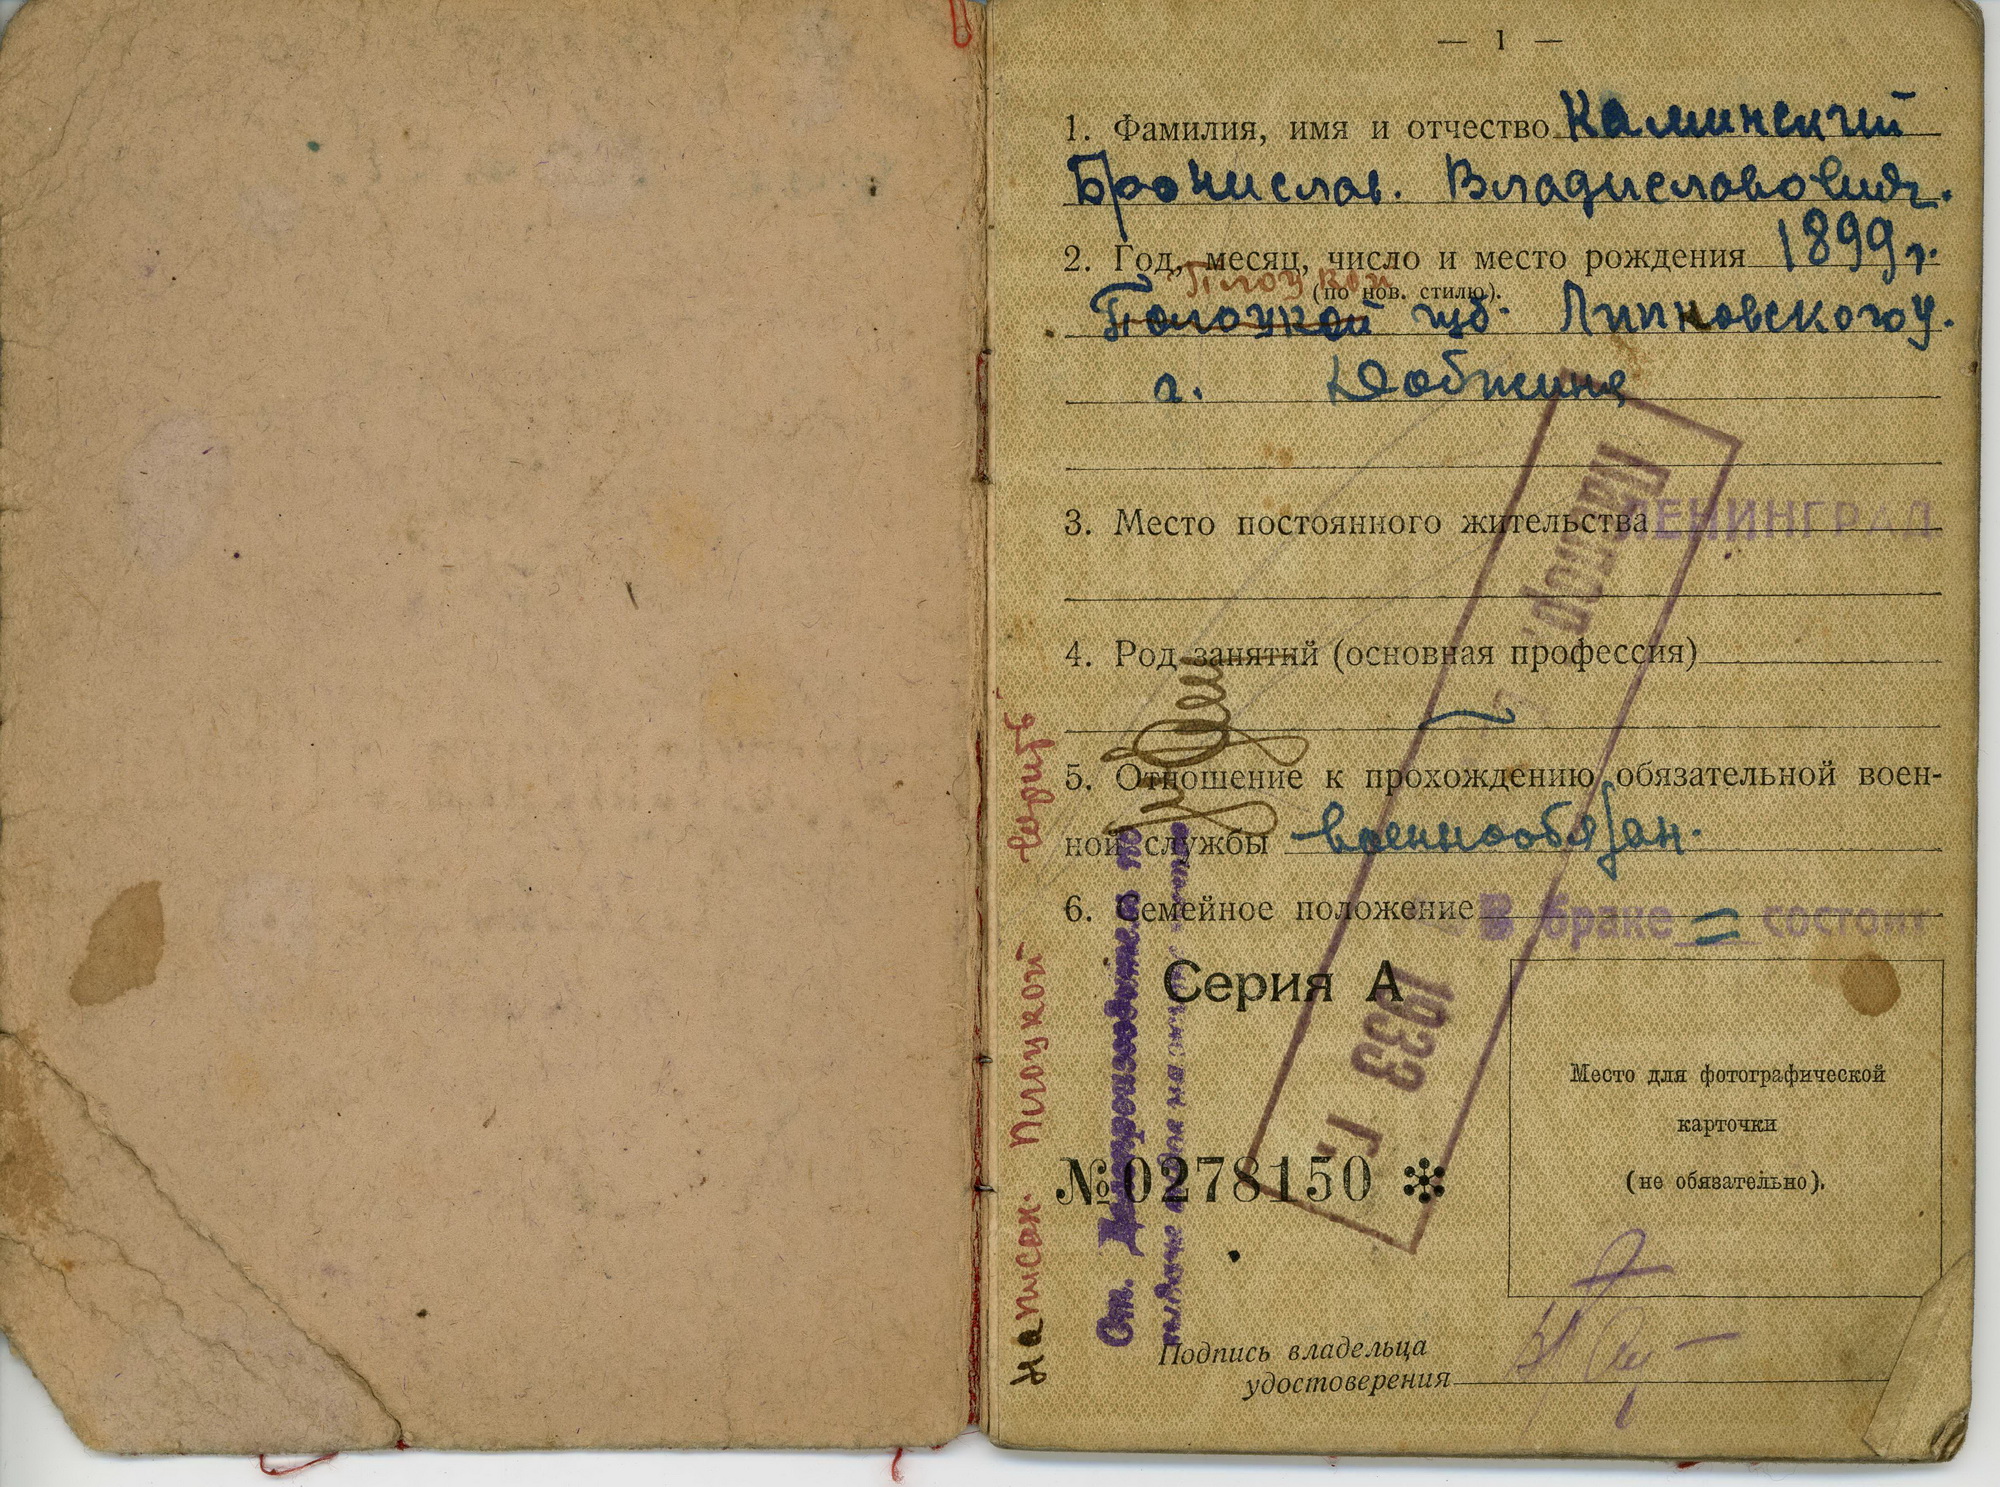 — 1 —
1. Фамилия, имя и отчество Каминский
Бронислав. Владиславович.
2. Год, месяц, число и место рождения 1899 г.
(по нов. стилю).
Плоцкой
Полоцкой губ. Липновского у.
Добжинь
3. Место постоянного жительства ЛЕНИНГРАД
4. Род занятий (основная профессия)
5. Отношение к прохождению обязательной воен-
ной службы военнообязан.
6. Семейное положение В браке = состоит
Серия А
№ 0278150
Место для фотографической
карточки
(не обязательно).
Подпись владельца
удостоверения
Паспорт.
1933 г.
написан. Плоцкой верить
От. Делопроизводитель по